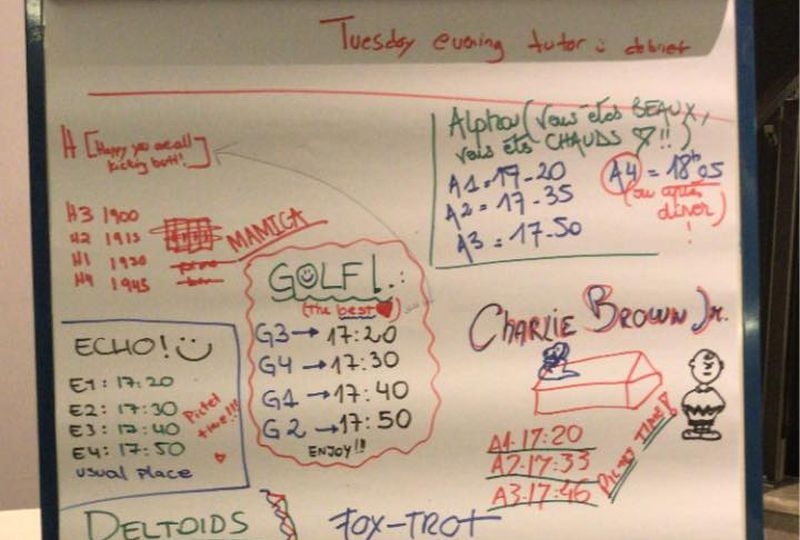 Tuesday evening tutor :: debrief
Alpha (vous êtes BEAUX,
vous êts CHAUDS ♡!!)
A1 = 17-20
A2 = 17-35
A3 = 17-50
A4 = 18h05
(ou après
dîner)
!
H [Happy you are all
kicking butt!]
H3 1900
H2 1915
H1 1930
H4 1945
MAMICA
GOLF!.:
(the best ❤)
G3 → 17:20
G4 → 17:30
G1 → 17:40
G2 → 17:50
ENJOY!!!
ECHO! ☺
E1: 17:20
E2: 17:30
E3: 17:40
E4: 17:50
usual place
Pictet
time!!!
CHARLIE BROWN Jr.
A1:17:20
A2:17:33
A3:17:46
TIME!
DELTOIDS
FOX-TROT